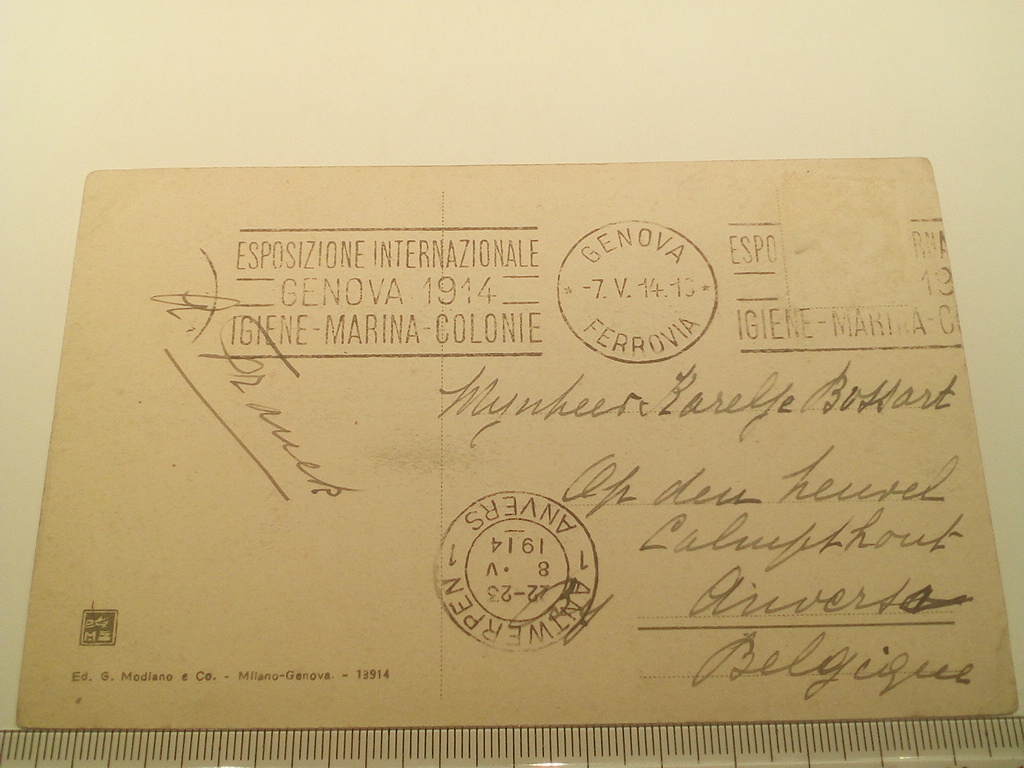 ESPOSIZIONE INTERNAZIONALE
GENOVA 1914
IGIENE-MARINA-COLONIE
GENOVA
* -7. V. 14.
FERROVIA
ESPO RNA
19
IGIENE-MARINA-C
Mynheer Bossart
Op den heuvel
Calmpthout
By Anvers
Belgique
1 ANTWERPEN 1 ANVERS
22-23
8 · V
1914
Ed. G. Modiano e Co. - Milano-Genova. - 13914